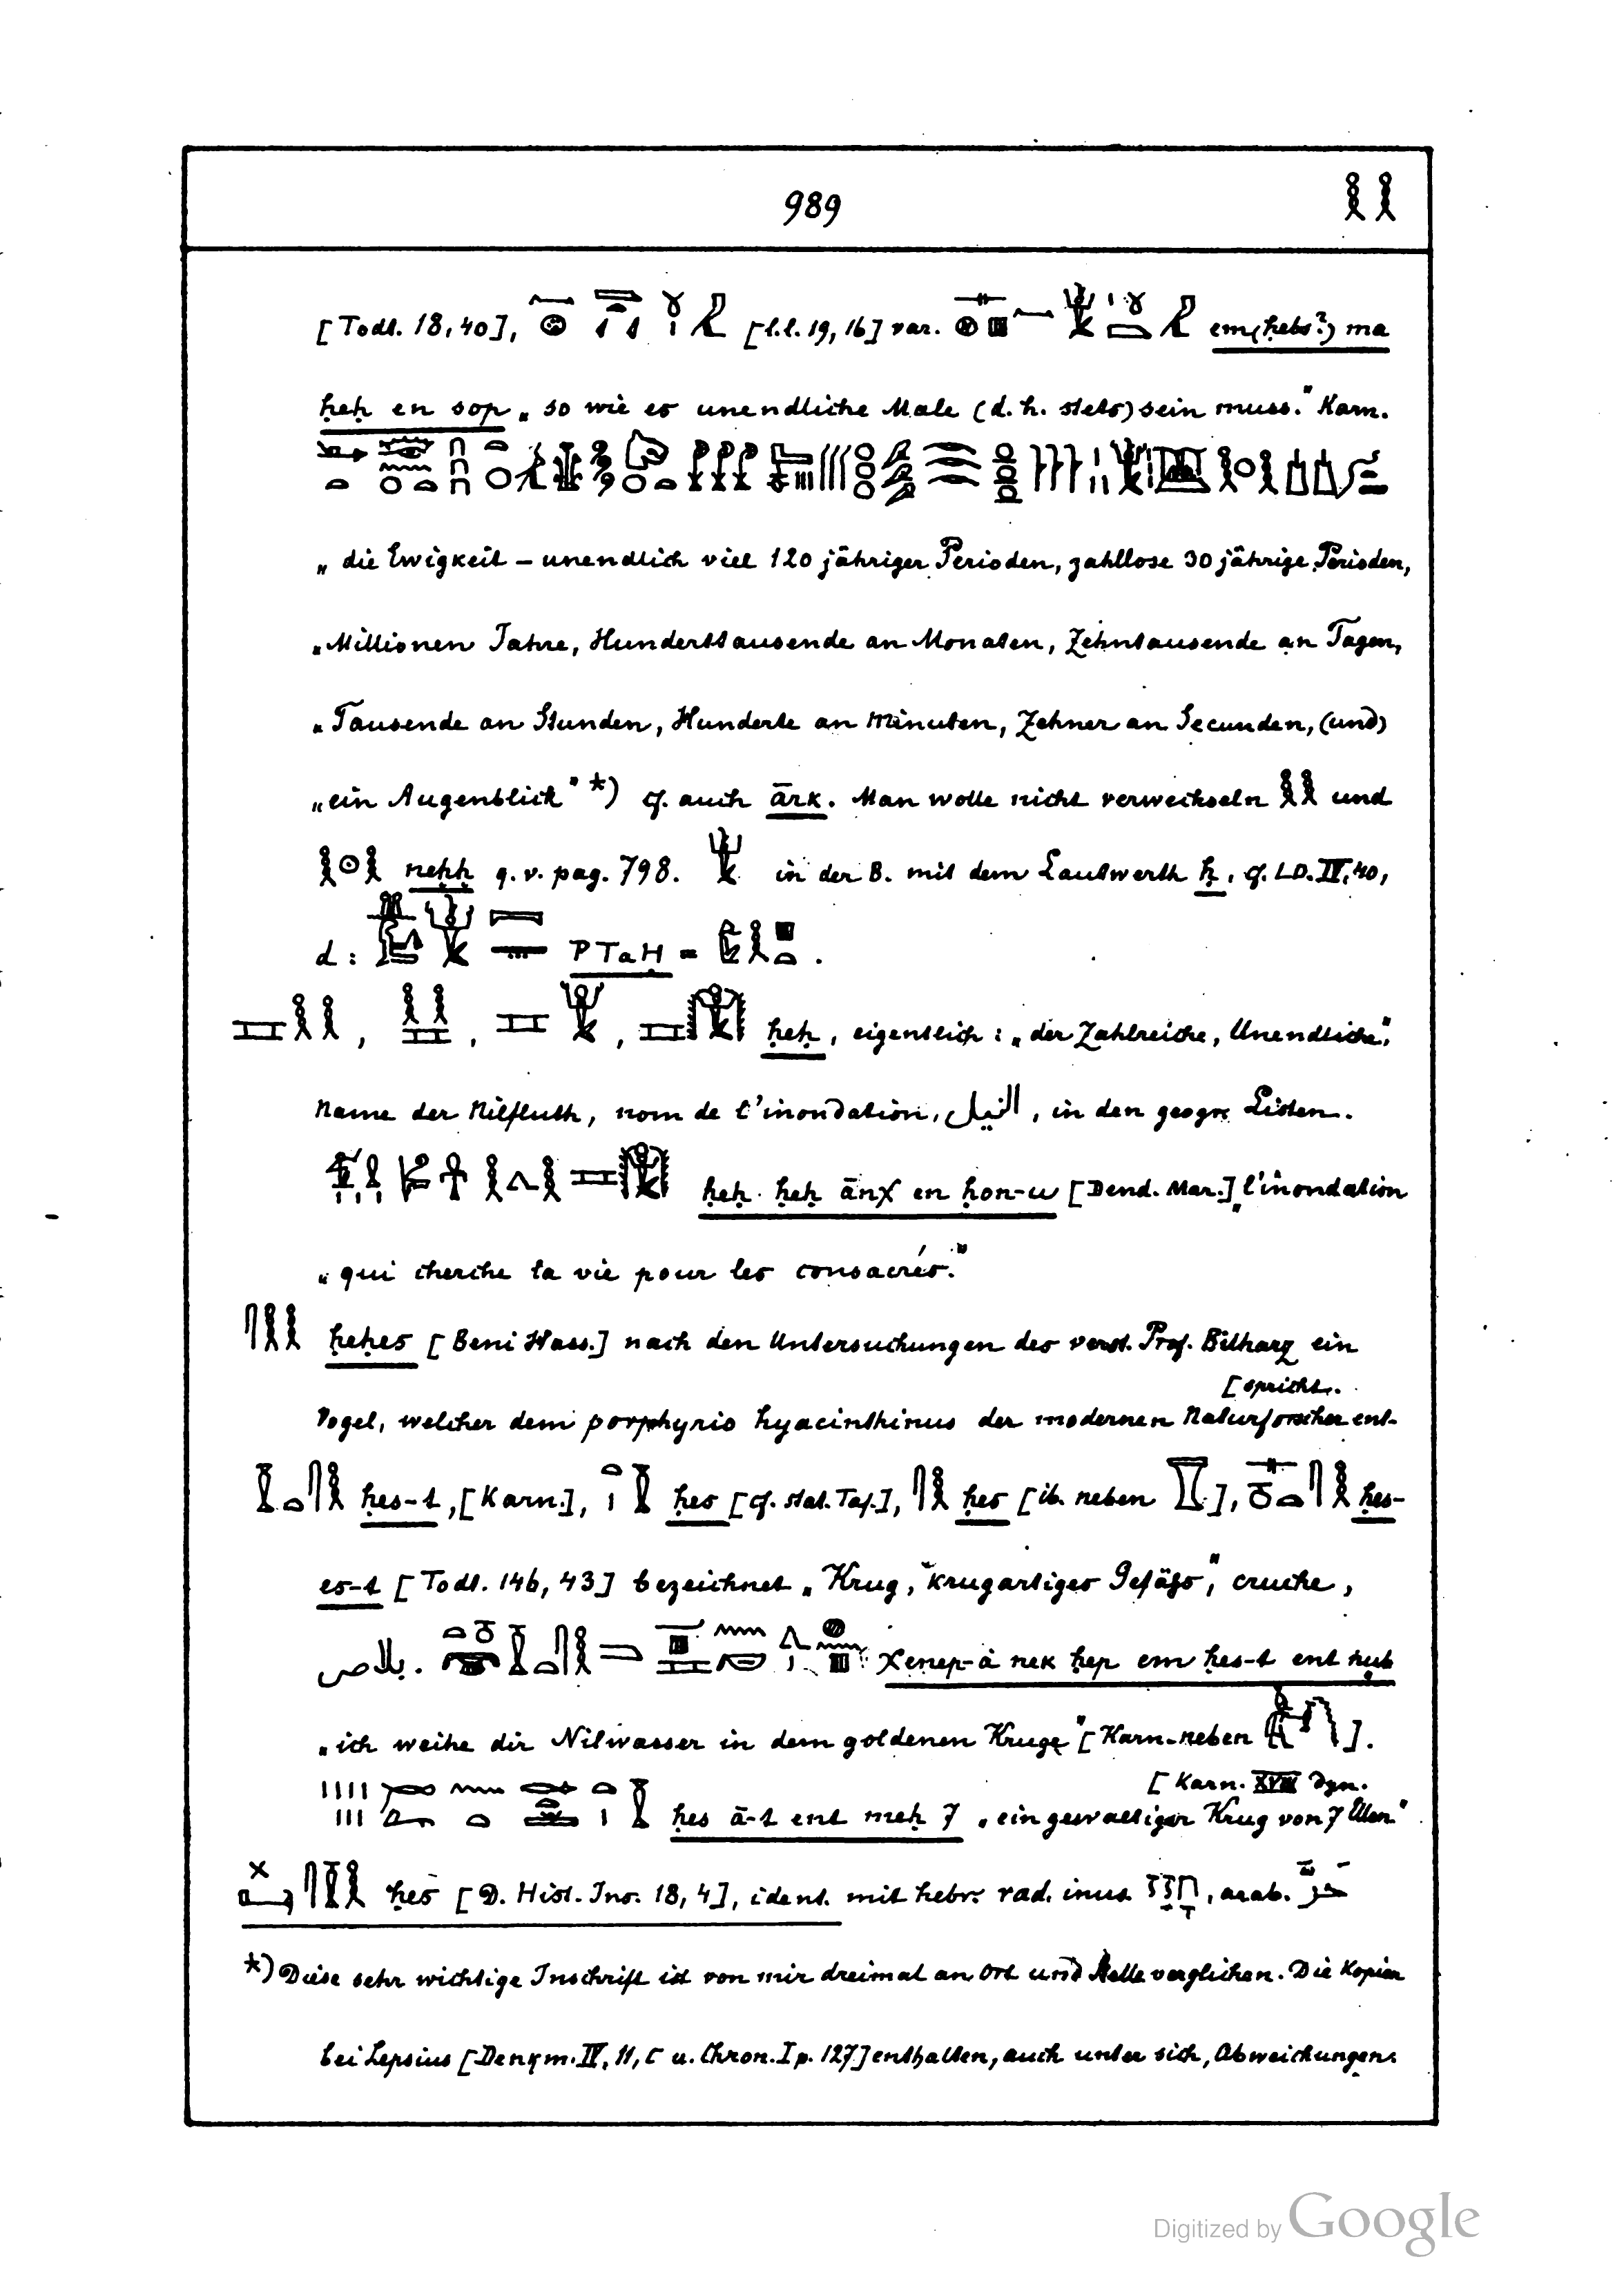 989
[Todt. 18,40], [l.l. 19,16] var. em (ḥebs?) ma
ḥeḥ en sop „so wie es unendliche Male (d. h. stets) sein muss." Karn.
„die Ewigkeit – unendlich viel 120 jähriger Perioden, zahllose 30 jährige Perioden,
„Millionen Jahre, Hunderttausende an Monaten, Zehntausende an Tagen,
„Tausende an Stunden, Hunderte an Minuten, Zehner an Secunden, (und)
„ein Augenblick" *) cf. auch ārk. Man wolle nicht verwechseln und
neḥḥ q. v. pag. 798. in der B. mit dem Lautwerth ḥ, cf. LD. IV, 40,
d: PTaḤ = .
, , , ḥeḥ, eigentlich: „der Zahlreiche, Unendliche",
Name der Nilfluth, nom de l'inondation, النيل, in den geogr. Listen.
ḥeḥ ḥeḥ ānχ en ḥon-u [Dend. Mar.] „l'inondation
„qui cherche la vie pour les consacrés."
ḥeḥes [Beni Hass.] nach den Untersuchungen des verst. Prof. Bilharz ein
[spricht.
Vogel, welcher dem porphyrio hyacinthinus der modernen Naturforscher ent-
ḥes-t, [Karn.], ḥes [cf. stat. Taf.], ḥes [ib. neben ], ḥes-
es-t [Todt. 146, 43] bezeichnet „Krug, krugartiges Gefäss", cruche,
بلاص. χenep-à nek ḥep em ḥes-t ent nub
„ich weihe dir Nilwasser in dem goldenen Kruge" [Karn. neben ].
[Karn. XVIII Dyn.
ḥes ā-t ent meḥ 7 „ein gewaltiger Krug von 7 Ellen"
ḥes [D. Hist. Ins. 18, 4], ident. mit hebr. rad. inus. , arab.
*) Diese sehr wichtige Inschrift ist von mir dreimal an Ort und Stelle verglichen. Die Kopien
bei Lepsius [Denkm. IV, 11, c u. Chron. I p. 127] enthalten, auch unter sich, Abweichungen.
Digitized by Google